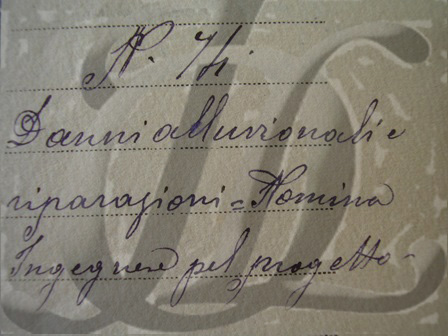 N. 74.
Danni alluvionali e
riparazioni = Nomina
Ingegnere pel progetto -